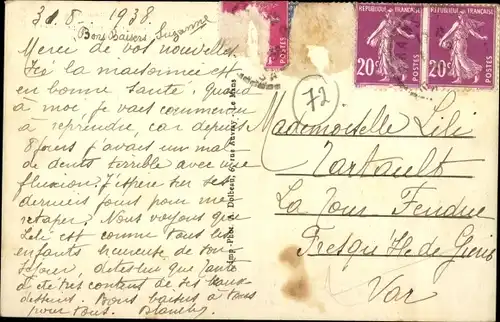 31 8 - 1938.
Bons Baisers Suzanne
Merci de vos nouvelles
Ici la maisonnée est
en bonne santé, quand
à moi, je vais commencer
à reprendre, car depuis
8 jours j'avais un mal
de dents terrible avec une
fluxion. J'espère que ses
derniers jours pour me
retaper? Nous voyons que
Lili est comme tous les
enfants heureuse de son
séjour, dites lui que Tante
a été très contente de ses beaux
dessins. Bons baisers à tous
pour tous. Blanche
Imp.-Phot. Dolbeau, 6, rue Auvray, Le Mans
REPUBLIQUE FRANÇAISE
20c POSTES
REPUBLIQUE FRANÇAISE
20c POSTES
POSTES
72
Mademoiselle Lili
Tartault
La Tour Fendue
Presqu'Ile de Giens
Var